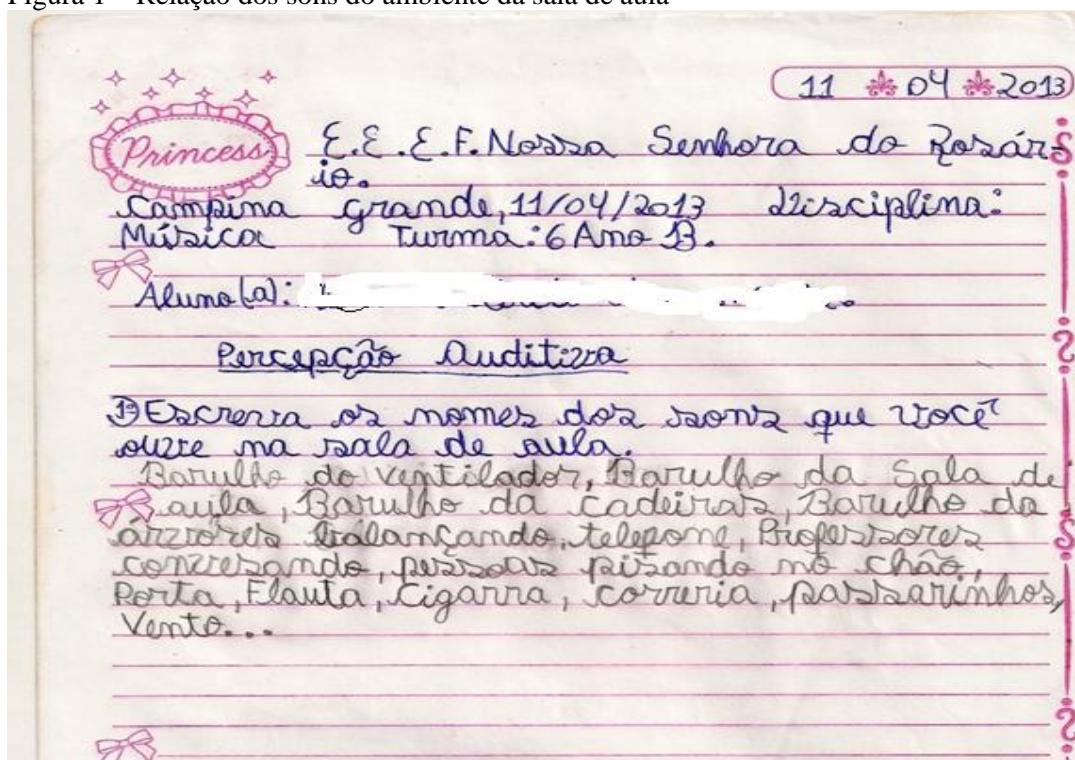 Figura 1 – Relação dos sons do ambiente da sala de aula
11 04 2013
Princess
E.E.E.F. Nossa Senhora do Rosár-
io.
Campina grande, 11/04/2013 Disciplina:
Música Turma: 6 Ano B.
Aluno(a):
Percepção Auditiva
1º Escreva os nomes dos sons que você
ouve na sala de aula.
Barulho do ventilador, Barulho da Sala de
aula, Barulho da cadeiras, Barulho da
árvores balançando, telepone, Professores
conversando, pessoas pisando no chão,
Porta, Flauta, Cigarra, correria, passarinhos,
Vento...